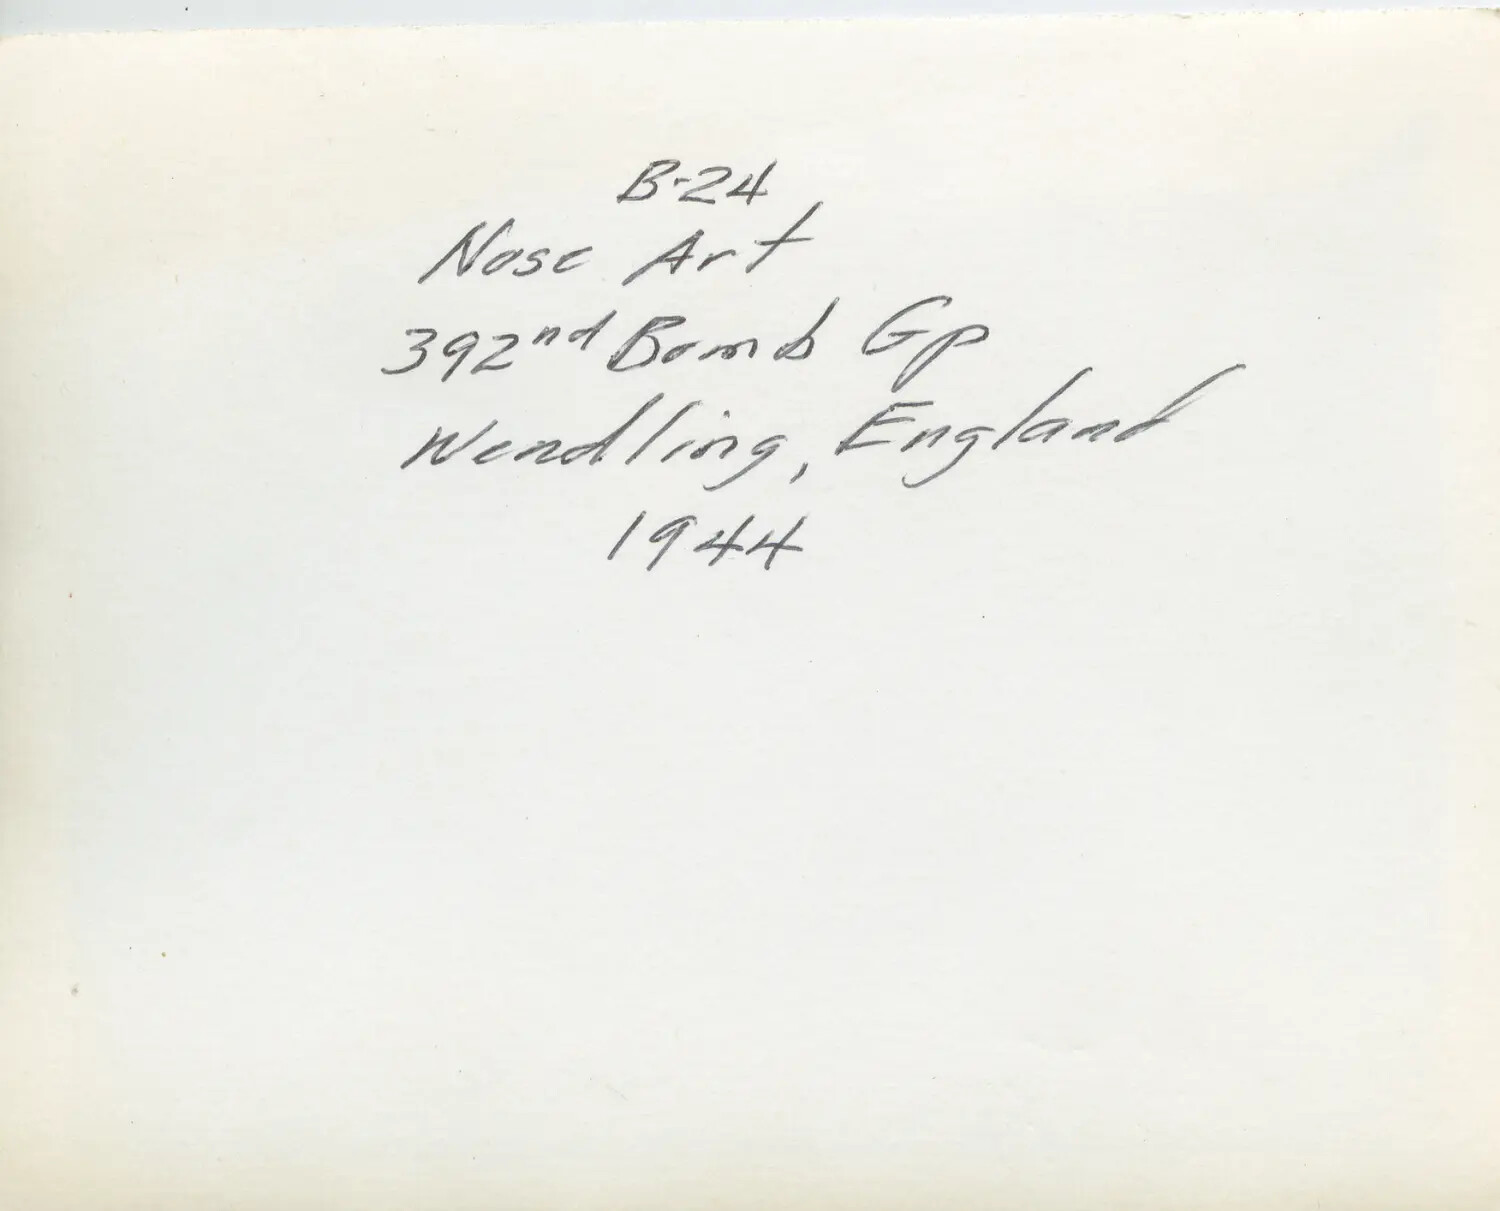 B-24
Nose Art
392nd Bomb Gp
Wendling, England
1944